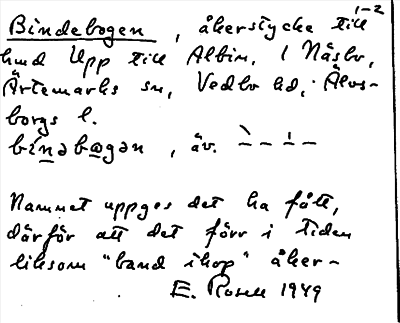 1-2
Bindebogen, åkerstycke till
hmd Upp till Albin, 1 Näsbo,
Ärtemarks sn, Vedbo hd, Älvs-
borgs l.
bi̱nəbo̱gən, äv.
Namnet uppges det ha fått,
därför att det förr i tiden
liksom "band ihop" åker-
E. Rosell 1949